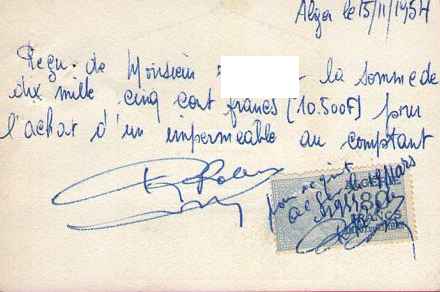 Alger le 15/11/1954
Reçu de Monsieur la somme de
dix mille cinq cent francs (10.500F) pour
l'achat d'un imperméable au comptant
pour acquit
ALGERIE
FRANCS